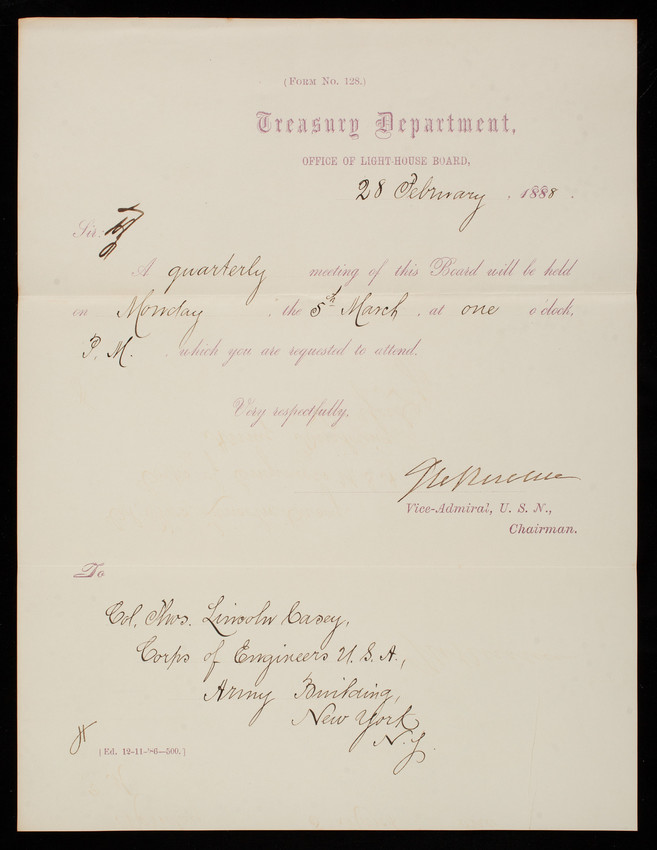 (FORM NO. 128.)
Treasury Department,
OFFICE OF LIGHT-HOUSE BOARD,
28 February, 1888.
Sir:
A quarterly meeting of this Board will be held
on Monday, the 5th March, at one o'clock,
P. M. which you are requested to attend.
Very respectfully,
Vice-Admiral, U. S. N.,
Chairman.
To
Col. Thos. Lincoln Casey,
Corps of Engineers U. S. A.,
Army Building,
New York
N.Y.
[Ed. 12-11-'86—500.]